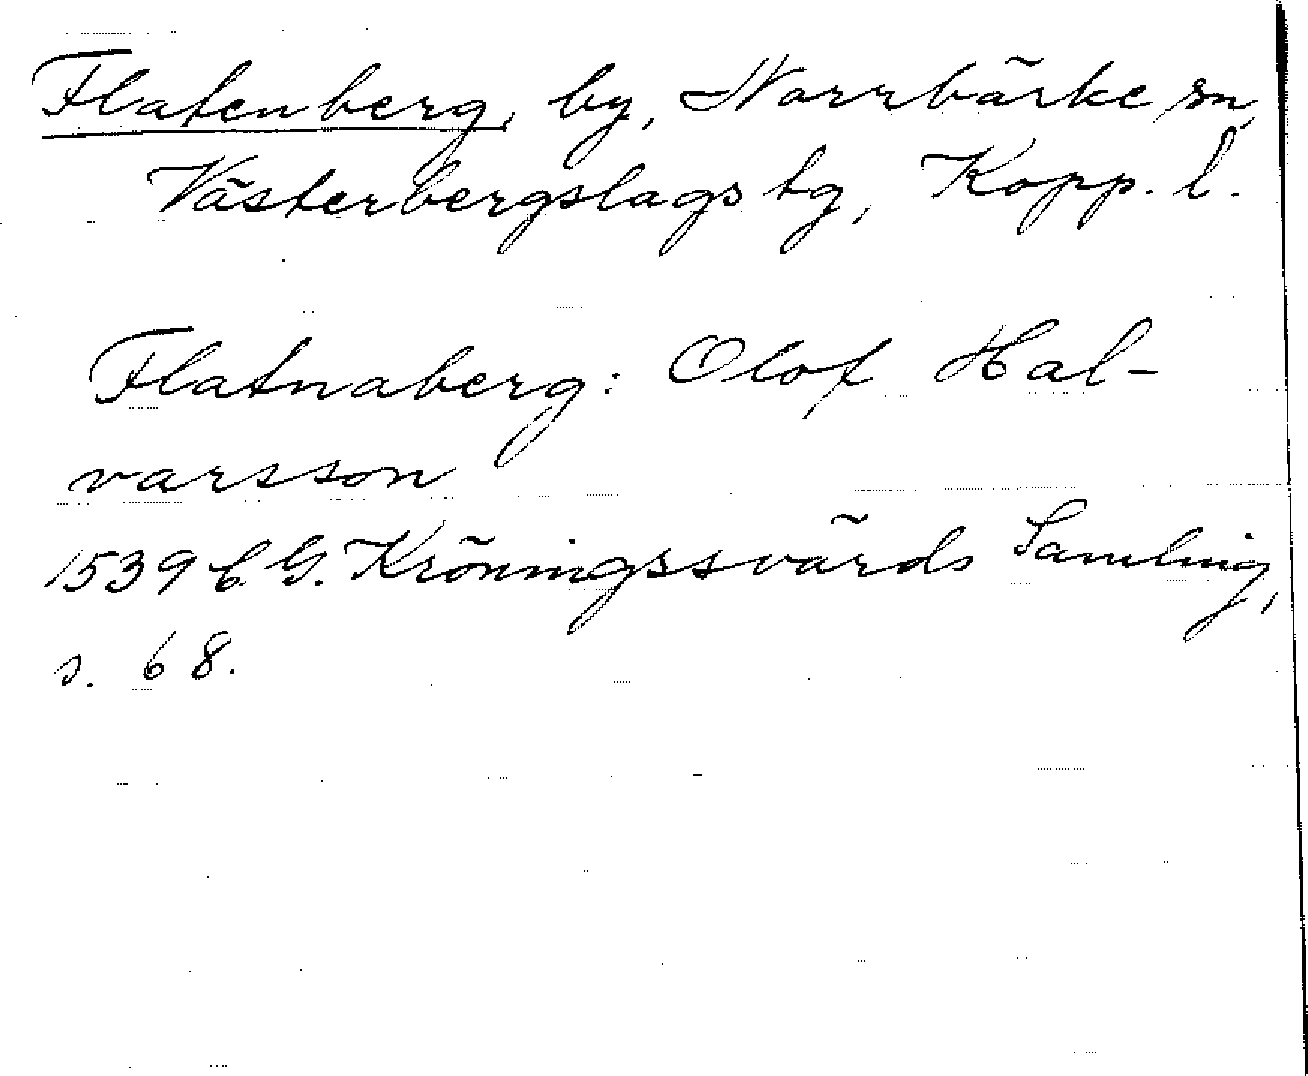 Flatenberg, by, Norrbärke sn,
Västerbergslags tg, Kopp. l.
Flatnaberg: Olof Hal-
varsson
1539 C. G. Kröningssvärds Samling,
s. 68.